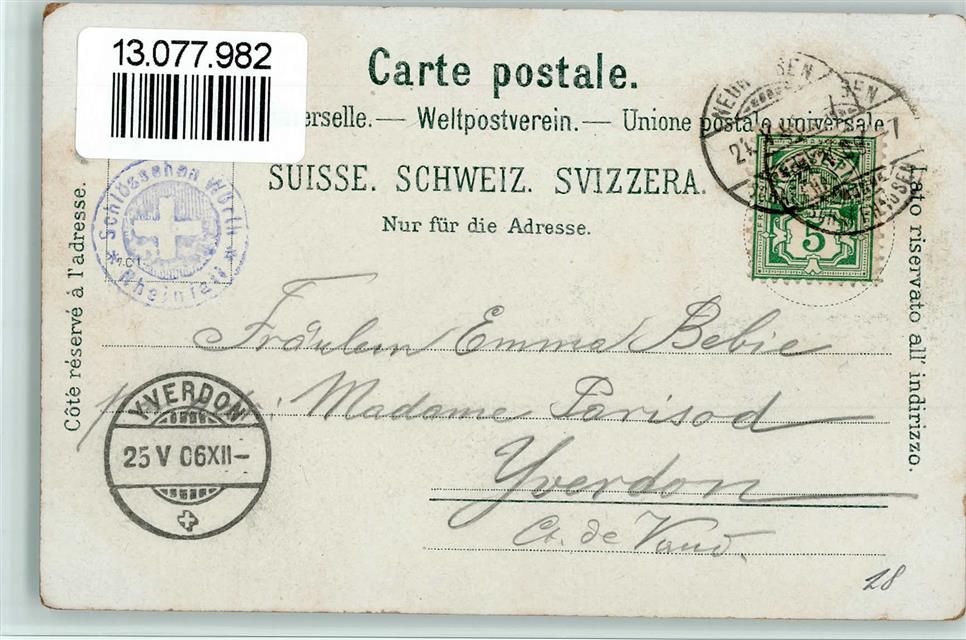 13.077.982
Carte postale.
erselle. — Weltpostverein. — Unione postale universale
SUISSE. SCHWEIZ. SVIZZERA.
Nur für die Adresse.
Côte réservé à l'adresse.
Lato riservato all' indirizzo.
Schlösschen Wörth
* Rheinfall *
5
Fräulein Emma Bebie
Madame Parisod
Yverdon
Ct. de Vaud.
YVERDON
25 V 06 XII–
28